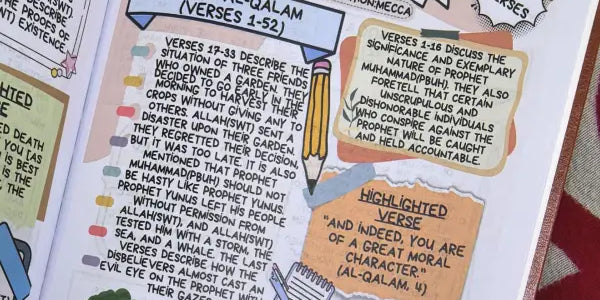 DESCRIBE
THE PROOFS OF
EXISTENCE.
DEATH
YOU [AS
IS BEST
IS THE
THE
AL-QALAM
(VERSES 1-52)
VERSES 17-33 DESCRIBE THE
SITUATION OF THREE FRIENDS
WHO OWNED A GARDEN. THEY
DECIDED TO GO EARLY IN THE
MORNING TO HARVEST THEIR
CROPS WITHOUT GIVING ANY TO
OTHERS. ALLAH(SWT) SENT A
DISASTER UPON THEIR GARDEN.
THEY REGRETTED THEIR DECISION,
BUT IT WAS TOO LATE. IT IS ALSO
MENTIONED THAT PROPHET
MUHAMMAD(PBUH) SHOULD NOT
BE HASTY LIKE PROPHET YUNUS.
PROPHET YUNUS LEFT HIS PEOPLE
WITHOUT PERMISSION FROM
ALLAH(SWT), AND ALLAH(SWT)
TESTED HIM WITH A STORM, THE
SEA, AND A WHALE. THE LAST
VERSES DESCRIBE HOW THE
DISBELIEVERS ALMOST CAST AN
EVIL EYE ON THE PROPHET WITH
THEIR GAZES
MECCA
VERSES
VERSES 1-16 DISCUSS THE
SIGNIFICANCE AND EXEMPLARY
NATURE OF PROPHET
MUHAMMAD(PBUH). THEY ALSO
FORETELL THAT CERTAIN
UNSCRUPULOUS AND
DISHONORABLE INDIVIDUALS
WHO CONSPIRE AGAINST THE
PROPHET WILL BE CAUGHT
AND HELD ACCOUNTABLE.
HIGHLIGHTED
VERSE
"AND INDEED, YOU ARE
OF A GREAT MORAL
CHARACTER."
(AL-QALAM, 4)